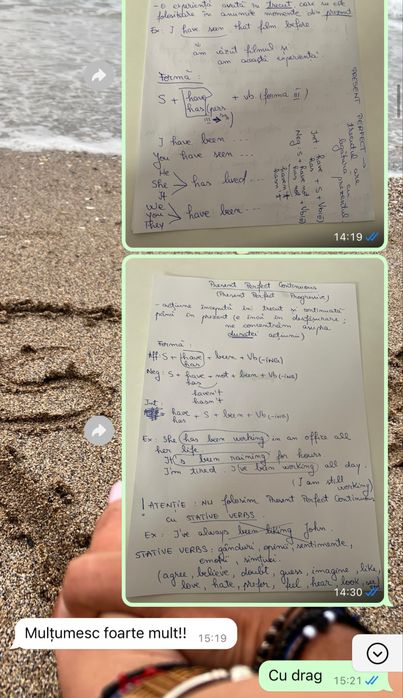 - o experiență avută în trecut care ne este
folositoare în anumite momente din prezent
Ex: I have seen that film before
am văzut filmul și
am această experiență
Formă:
S + have + vb (forma III)
has (pers
III sg)
I have been ...
You have seen ...
He
She has lived ...
It
We
You have been ...
They
PRESENT PERFECT →
trecutul are
legătura cu
prezentul
Int: have + S + Vb(3)
has
Neg: S + have not + Vb(3)
has not
haven't
hasn't
14:19
Present Perfect Continuous
(Present Perfect Progressive)
- acțiune începută în trecut și continuată
până în prezent (e încă în desfășurare;
ne concentrăm asupra
duratei acțiunii)
Formă:
Aff: S + have + been + Vb(-ING)
has
Neg: S + have + not + been + Vb(-ING)
has
haven't
hasn't
Int:
have + S + been + Vb(-ING)
has
Ex: She has been working in an office all
her life
It's been raining for hours
I'm tired. I've been working all day.
(I am still
working)
! ATENȚIE: NU folosim Present Perfect Continuous
cu STATIVE VERBS.
Ex: I've always been liking John.
STATIVE VERBS: gânduri, opinii, sentimente,
emoții, simțuri
(agree, believe, doubt, guess, imagine, like,
love, hate, prefer, feel, hear, look, see)
14:30
Mulțumesc foarte mult!! 15:19
Cu drag 15:21